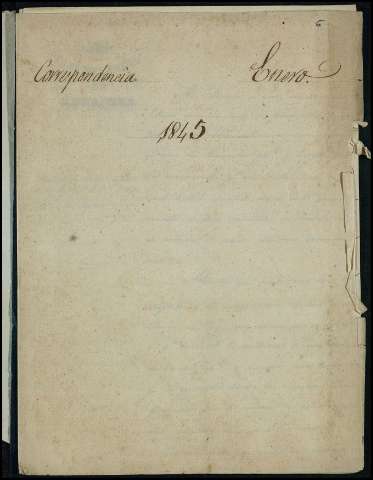 6
Correspondencia Enero.
1845